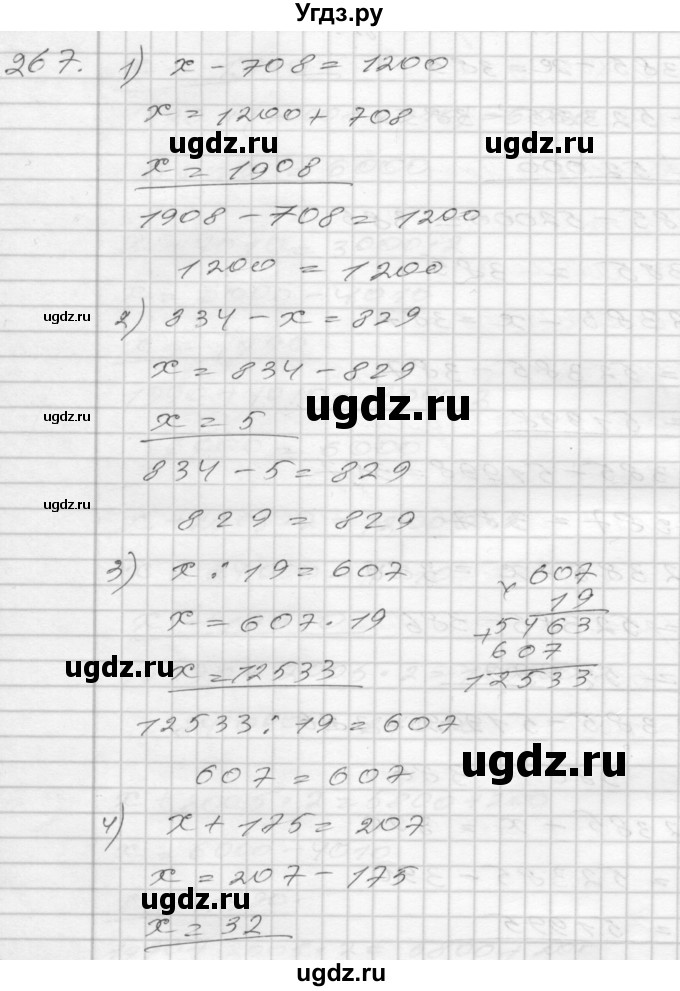 Угдз.ру
267. 1) x - 708 = 1200
x = 1200 + 708
ugdz.ru ugdz.ru
x = 1908
1908 - 708 = 1200
1200 = 1200
ugdz.ru
2) 834 - x = 829
x = 834 - 829
ugdz.ru
ugdz.ru
x = 5
834 - 5 = 829
ugdz.ru
829 = 829
3) x : 19 = 607
x = 607 · 19
ugdz.ru
x = 12533
× 607
19
+ 5463
607
12533
12533 : 19 = 607
ugdz.ru
607 = 607
4) x + 175 = 207
x = 207 - 175
ugdz.ru ugdz.ru
x = 32
ugdz.ru